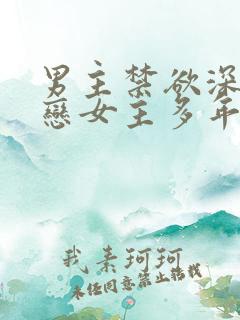 男主禁欲深
戀女主多年
我素珂珂
未經同意禁止轉載